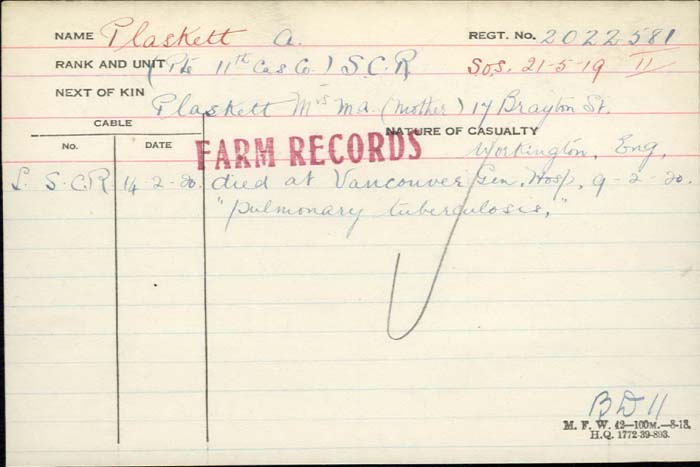 NAME Plaskett A. REGT. No. 2022581
RANK AND UNIT (Pte 11th Cas Co.) S.C.R S.O.S. 21-5-19 11
NEXT OF KIN Plaskett Mrs Ma. (mother) 17 Brayton St.
CABLE NATURE OF CASUALTY
No. DATE FARM RECORDS Workington, Eng,
L. S.C.R. 14-2-20. died at Vancouver Gen. Hosp, 9-2-20.
"pulmonary tuberculosis,"
BD 11
M. F. W. 42—100M.—8-18.
H.Q. 1772-39-893.